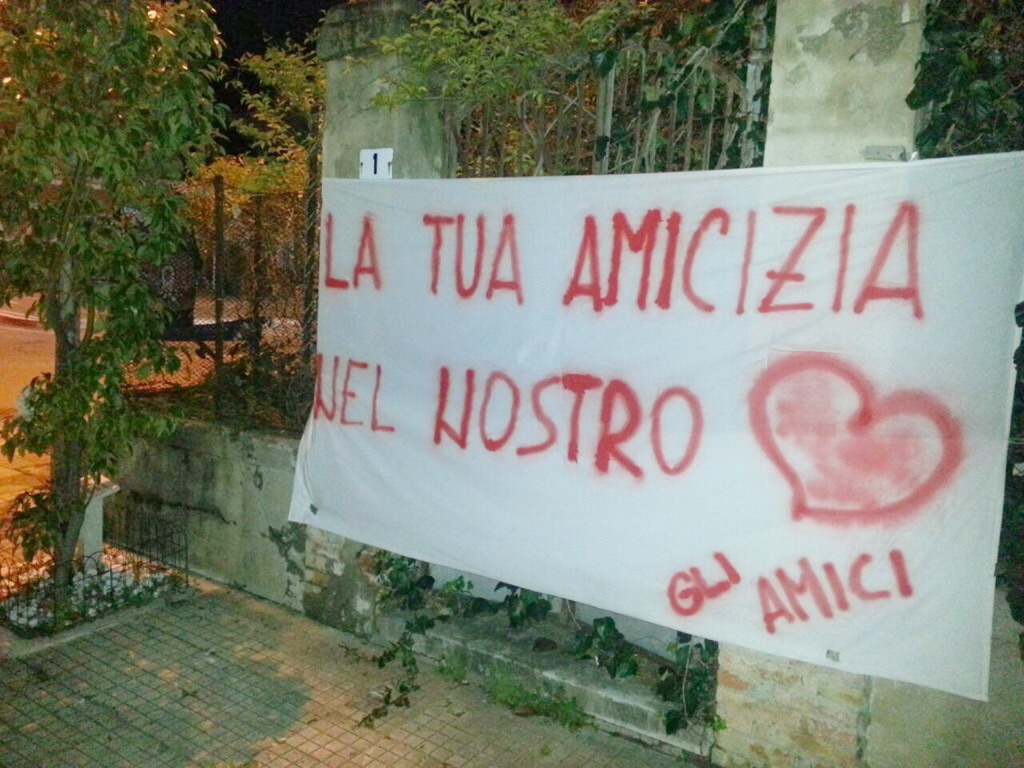 1
LA TUA AMICIZIA
NEL NOSTRO
GLI AMICI